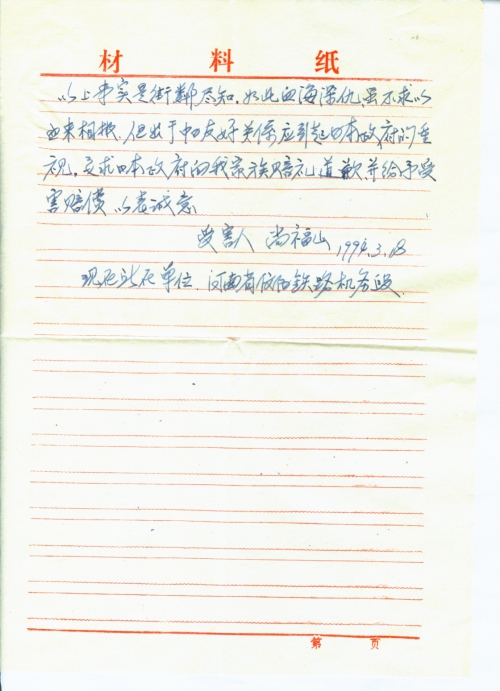 材 料 纸
以上事实是街邻尽知,如此血海深仇,虽不求以
血来相报,但出于中日友好关系应引起日本政府的重
视,要求日本政府向我家族赔礼道歉并给予受
害赔偿 以表诚意
受害人 尚福山 1994.3.
现在所在单位 河南省 铁路机务段
第 页